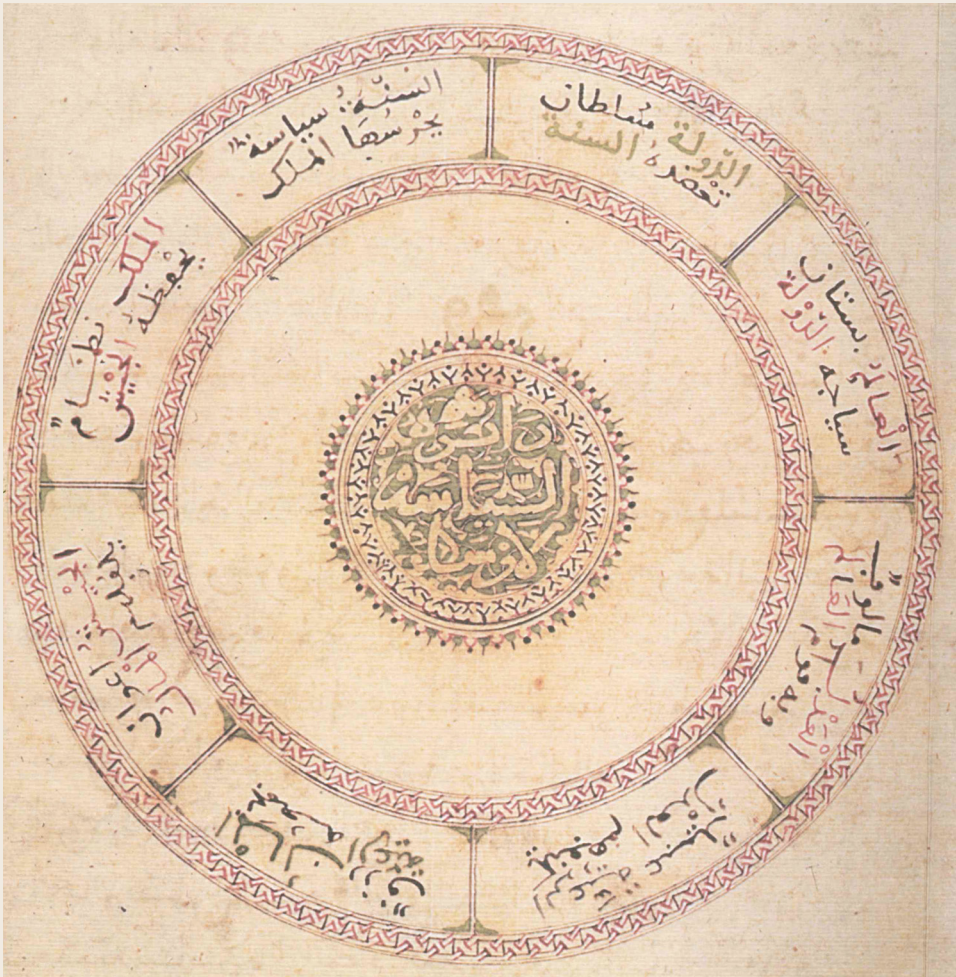 العالم بستان
سياجه الدولة
الدولة سلطان
تعضده السنة
السنة: سياسة
يحرسها الملك
الملك نظام
يحفظه الجيش
الجيش اعوان
يكفلهم المال
المال رزق
الرعية
الرعية عبيد
العدل
العدل مالوف
وبه قوام العالم
دائرة
السياسة